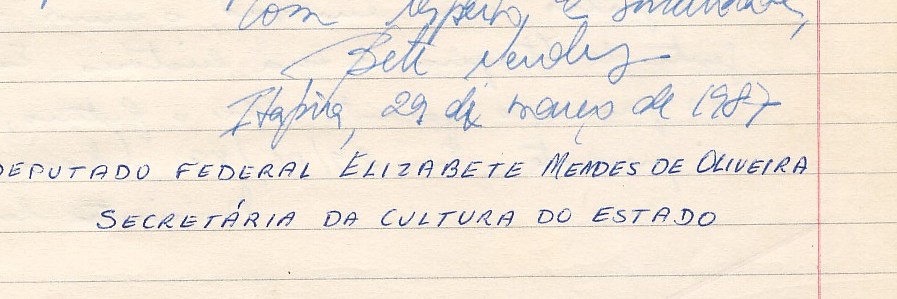 Com respeito, e
Bete Mendes
Itapira, 29 de março de 1987
DEPUTADO FEDERAL ELIZABETE MENDES DE OLIVEIRA
SECRETÁRIA DA CULTURA DO ESTADO